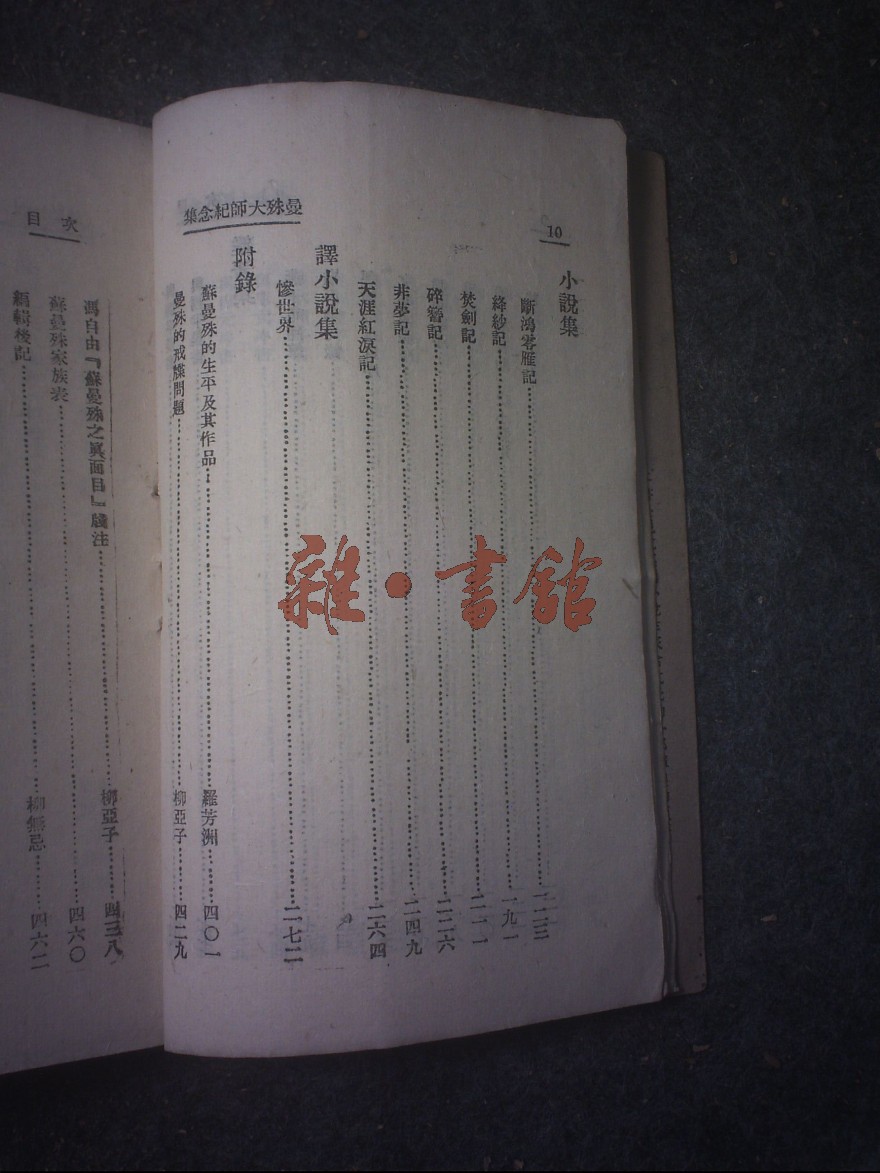 10
曼殊大師紀念集
小說集
斷鴻零雁記……一二三
絳紗記……一九一
焚劍記……二一一
碎簪記……二二六
非夢記……二四九
天涯紅淚記……二六四
譯小說集
慘世界……二七二
附錄
蘇曼殊的生平及其作品……羅芳洲……四〇一
曼殊的戒牒問題……柳亞子……四二九
目次
馮自由『蘇曼殊之眞面目』牋注……柳亞子……四三八
蘇曼殊家族表……四六〇
編輯後記……柳無忌……四六二
雜·書館